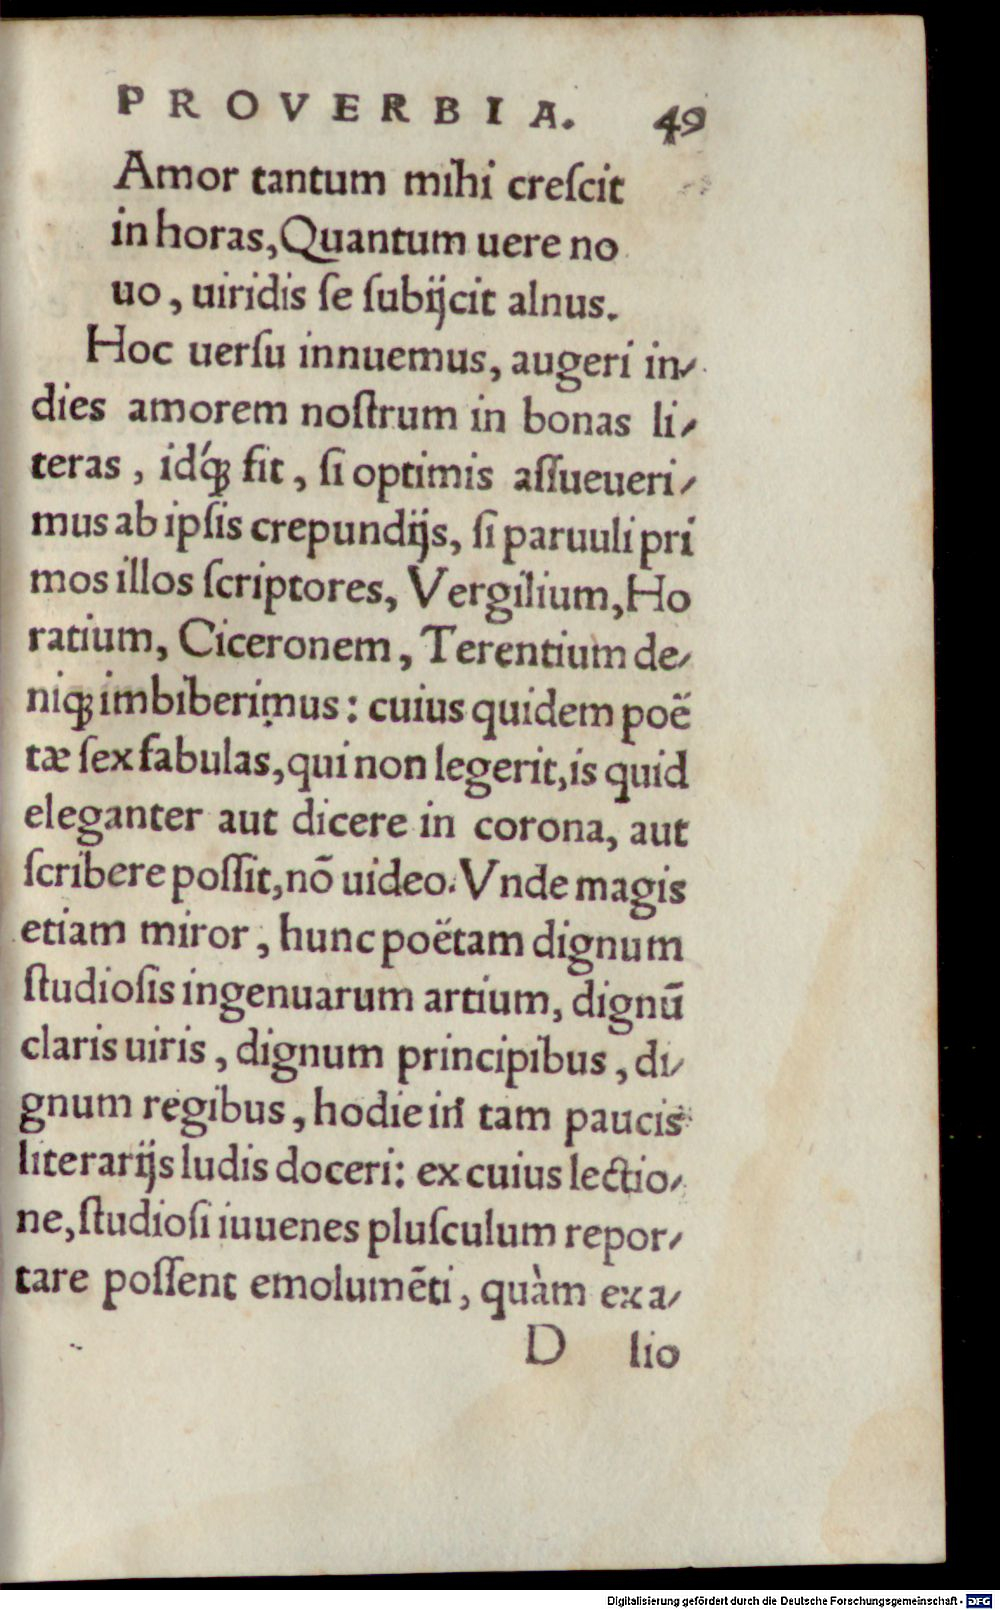 PROVERBIA. 49
Amor tantum mihi creſcit
in horas, Quantum uere no
uo, uiridis ſe ſubijcit alnus.
Hoc uerſu innuemus, augeri in⸗
dies amorem noſtrum in bonas li⸗
teras, idq́ꝫ fit, ſi optimis aſſueueri⸗
mus ab ipſis crepundijs, ſi paruuli pri
mos illos ſcriptores, Vergilium, Ho
ratium, Ciceronem, Terentium de⸗
niqꝫ imbiberimus: cuius quidem poë
tæ ſex fabulas, qui non legerit, is quid
eleganter aut dicere in corona, aut
ſcribere poſſit, nō uideo. Vnde magis
etiam miror, hunc poëtam dignum
ſtudioſis ingenuarum artium, dignū
claris uiris, dignum principibus, di⸗
gnum regibus, hodie in tam paucis
literarijs ludis doceri: ex cuius lectio⸗
ne, ſtudioſi iuuenes pluſculum repor⸗
tare poſſent emolumēti, quàm ex a⸗
D lio
Digitalisierung gefördert durch die Deutsche Forschungsgemeinschaft - DFG